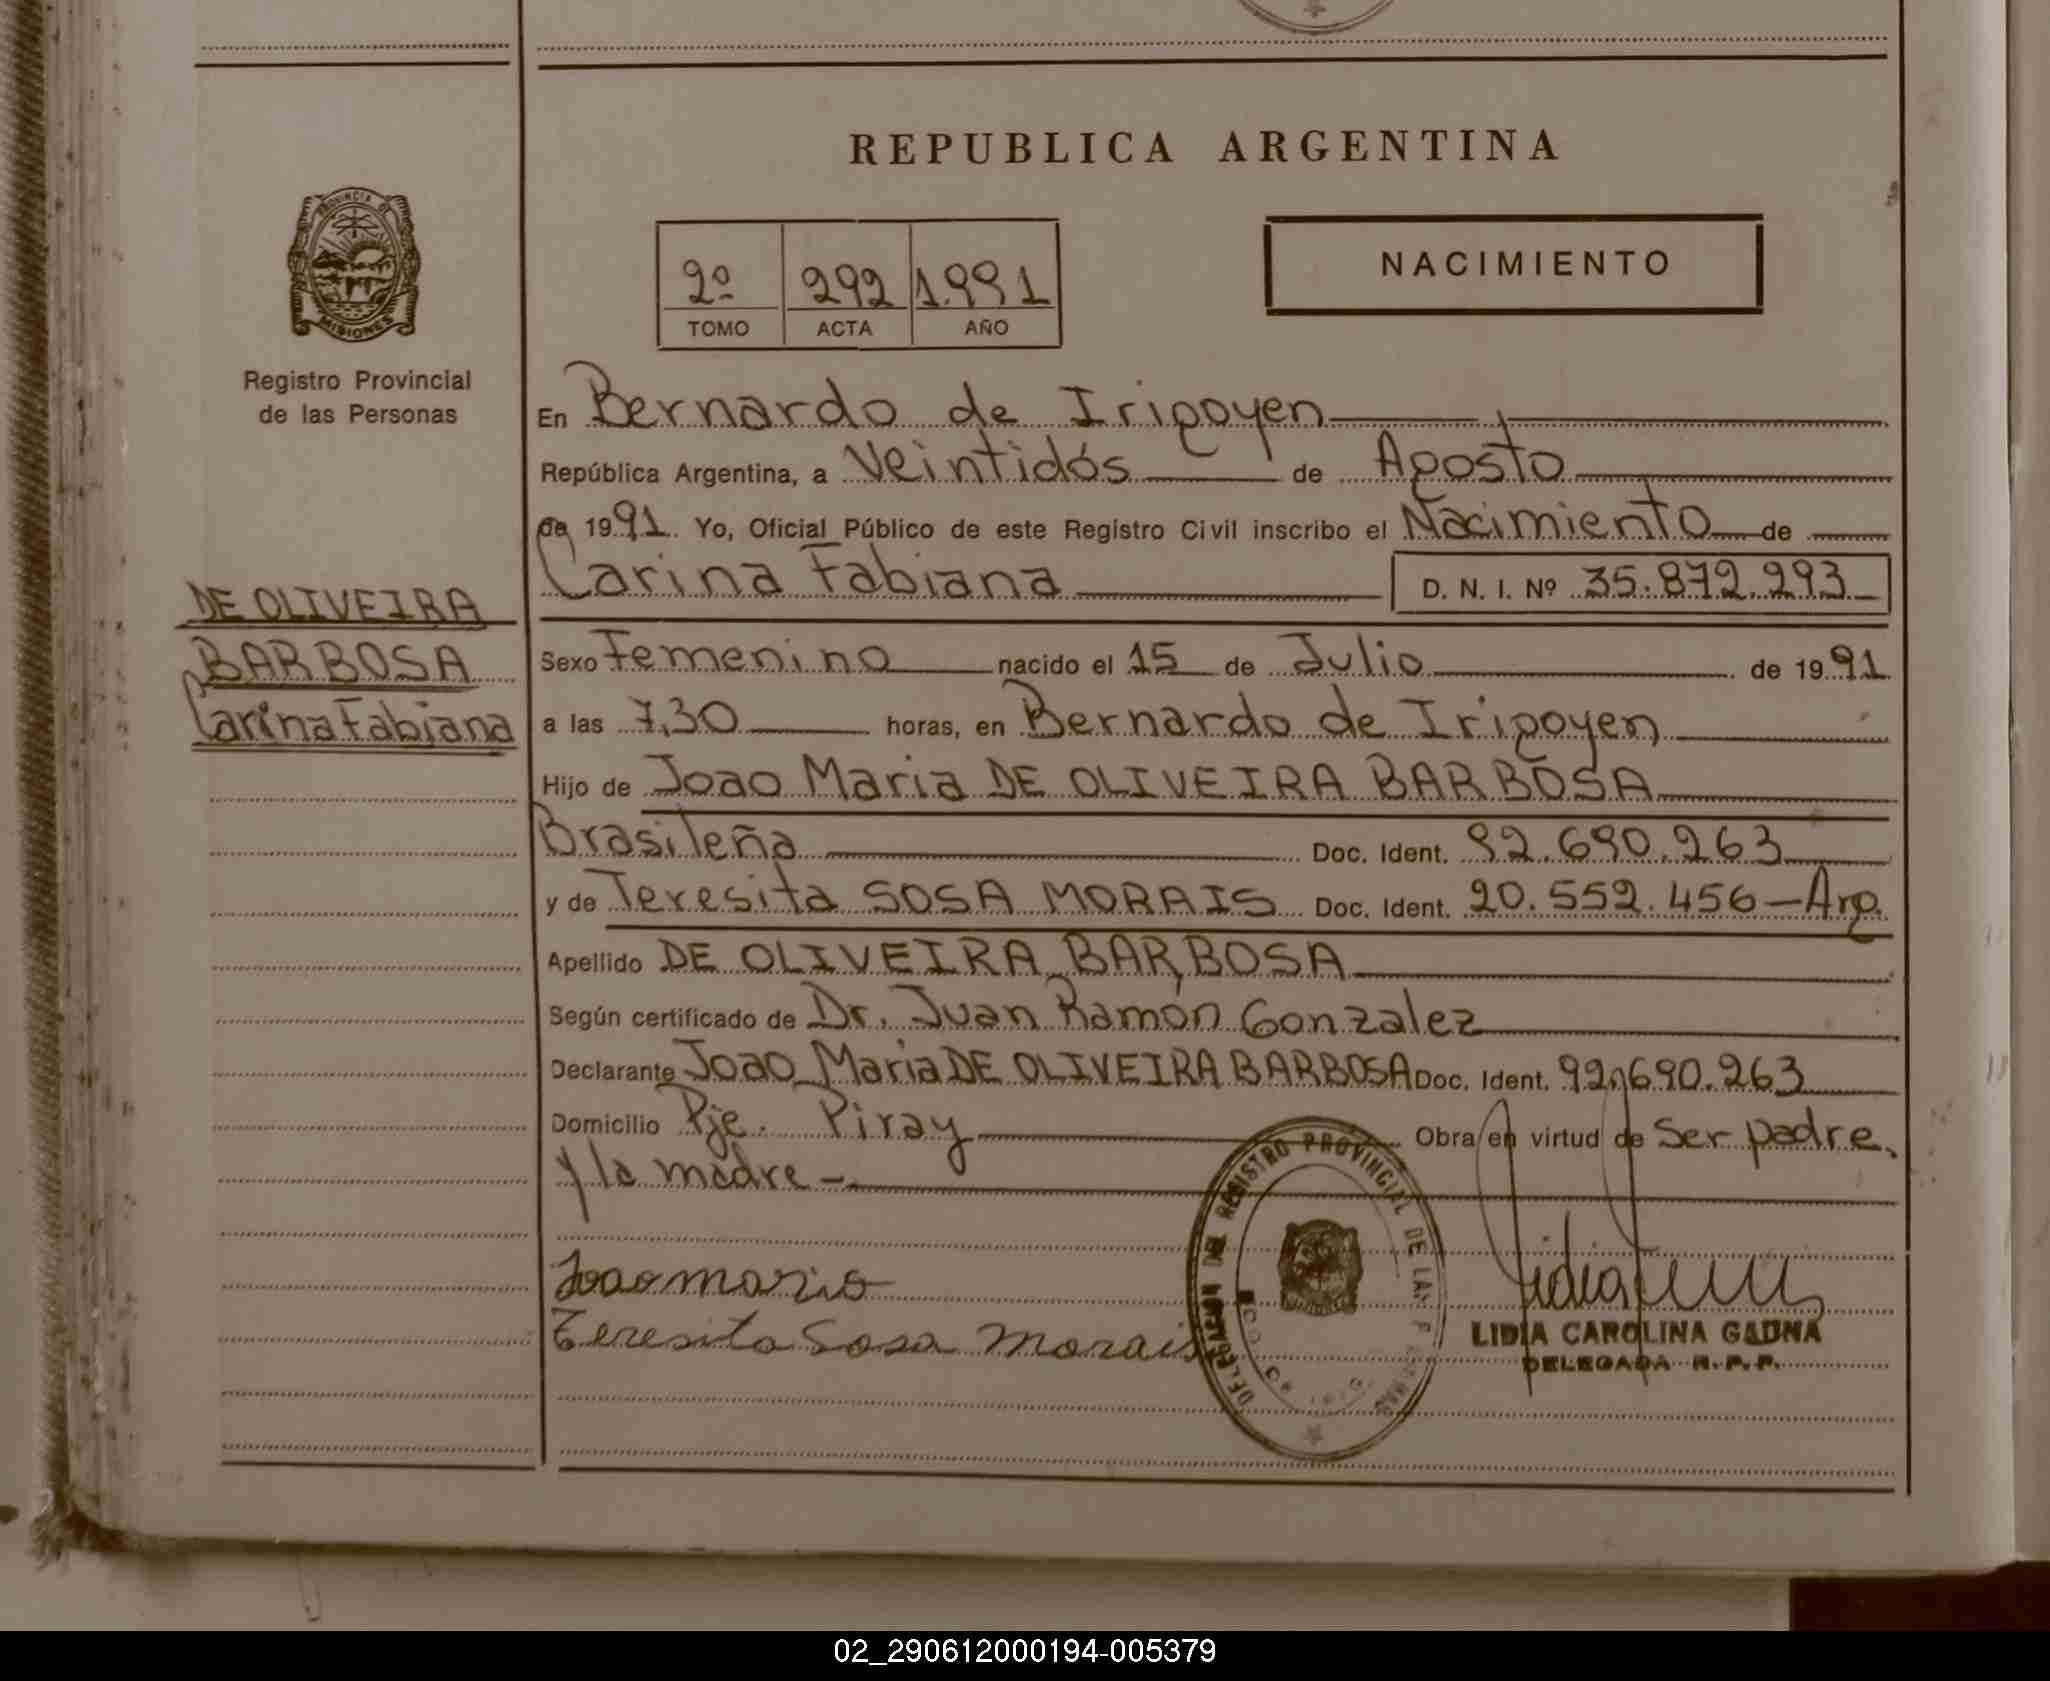 REPUBLICA ARGENTINA
PROVINCIA DE
MISIONES
Registro Provincial
de las Personas
2º 292 1.991
TOMO ACTA AÑO
NACIMIENTO
En Bernardo de Irigoyen
República Argentina, a Veintidós de Agosto
de 1991 Yo, Oficial Público de este Registro Civil inscribo el Nacimiento de
Carina Fabiana D. N. I. Nº 35.872.293
DE OLIVEIRA
BARBOSA
Carina Fabiana
Sexo Femenino nacido el 15 de Julio de 1991
a las 7,30 horas, en Bernardo de Irigoyen
Hijo de Joao Maria DE OLIVEIRA BARBOSA
Brasileña Doc. Ident. 92.690.263
y de Teresita SOSA MORAIS Doc. Ident. 20.552.456-Arg.
Apellido DE OLIVEIRA BARBOSA
Según certificado de Dr. Juan Ramón Gonzalez
Declarante Joao Maria DE OLIVEIRA BARBOSA Doc. Ident. 92.690.263
Domicilio Pje. Piray Obra en virtud de Ser padre.
y la madre -
Joao maria
Teresita Sosa Morais
DELEGACION DEL REGISTRO PROVINCIAL DE LAS
LIDIA CAROLINA GAUNA
DELEGADA R. P. P.
02_290612000194-005379